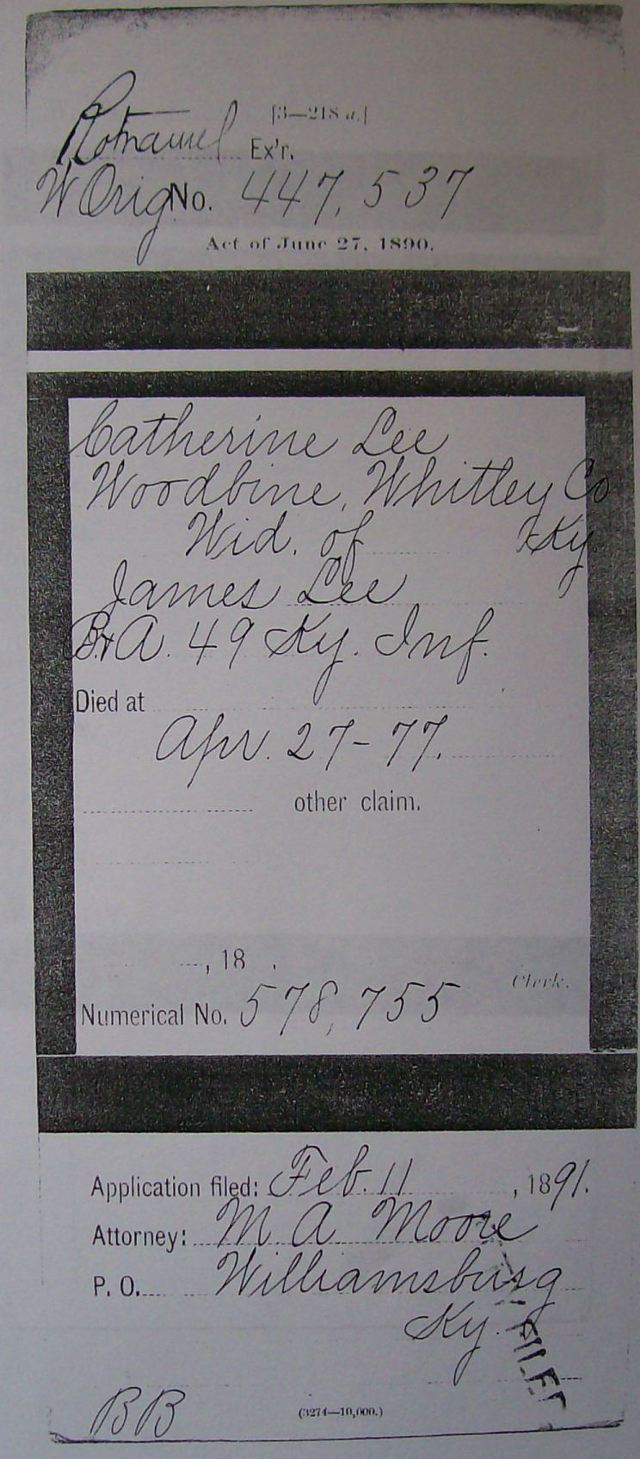 [3—218 a.]
Ex'r.
W Orig No. 447,537
Act of June 27, 1890.
Catherine Lee
Woodbine, Whitley Co
Wid. of Ky.
James Lee
A. 49 Ky. Inf.
Died at
Apr. 27-77.
other claim.
, 18 .
Clerk.
Numerical No. 578,755
Application filed: Feb. 11, 1891.
Attorney: M A Moore
P. O. Williamsburg
Ky.
FILED
BB
(3274—10,000.)